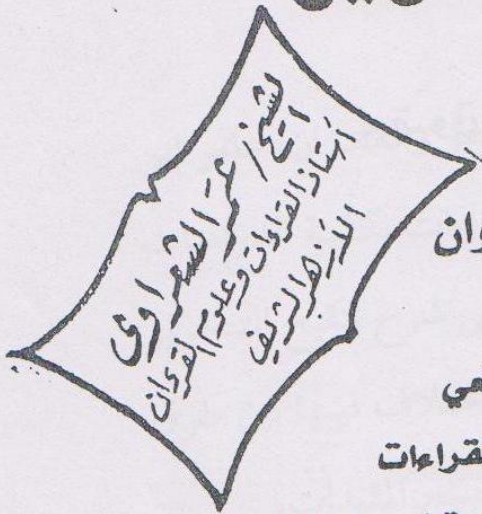 الشيخ / عمر الشعراوى
أستاذ القراءات وعلوم القرءان
الأزهر الشريف
وان
عي
قراءات